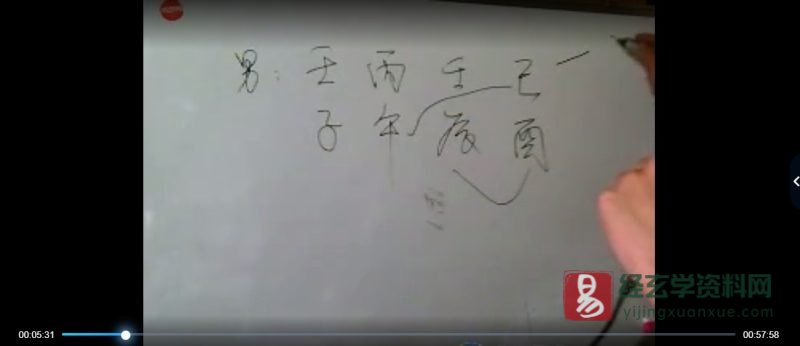 男：壬 丙 壬 己
子 午 辰 酉
经玄学资料网
yijingxuanxue.com
易
00:05:31
00:57:58